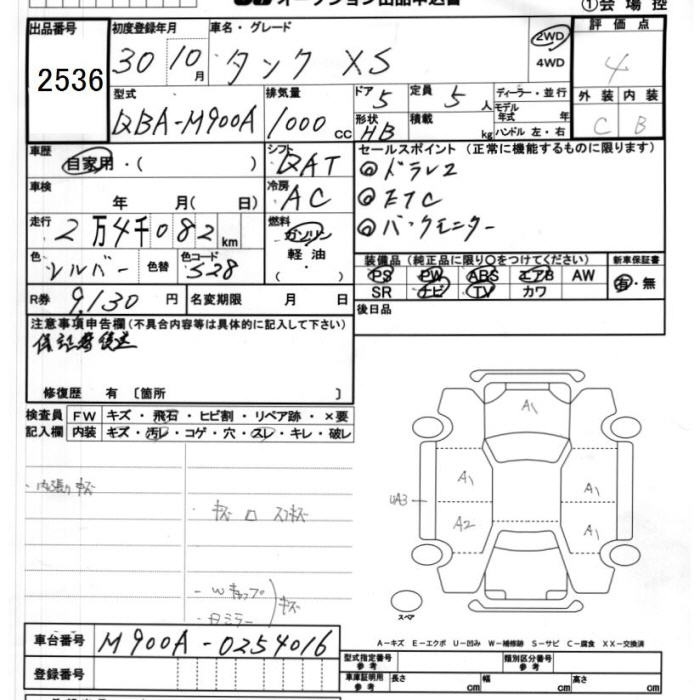 オークション出品申込書
①会場控
出品番号
2536
初度登録年月
30 10月
車名・グレード
タンク XS
2WD
4WD
評価点
4
型式
DBA-M900A
排気量
1000 cc
ドア
5
定員
5 人
ディーラー・並行
モデル年式 年
ハンドル 左・右
形状
HB
積載
kg
外装 内装
C B
車歴
自家用・( )
シフト
DAT
セールスポイント (正常に機能するものに限ります)
◎ドラレコ
◎ETC
◎バックモニター
車検
年 月( 日)
冷房
AC
走行
2万4千082km
燃料
ガソリン
軽油
( ・ )
色
シルバー
色替
色コード
S28
装備品 (純正品に限り○をつけてください)
PS PW ABS エアB AW
SR ナビ TV カワ
新車保証書
有・無
R券 9,130 円
名変期限 月 日
後日品
注意事項申告欄(不具合内容等は具体的に記入して下さい)
保証書後送
修復歴 有 〔箇所 〕
検査員記入欄
FW キズ・飛石・ヒビ割・リペア跡・×要
内装 キズ・汚レ・コゲ・穴・スレ・キレ・破レ
・内張りキズ
A1
A1
A1
UA3
A2
A1
スペア
A−キズ E−エクボ U−凹み W−補修跡 S−サビ C−腐食 XX−交換済
車台番号
M900A-0254016
登録番号
型式指定番号
参考
類別区分番号
参考
車庫証明用
参考
長さ cm
幅 cm
高さ cm